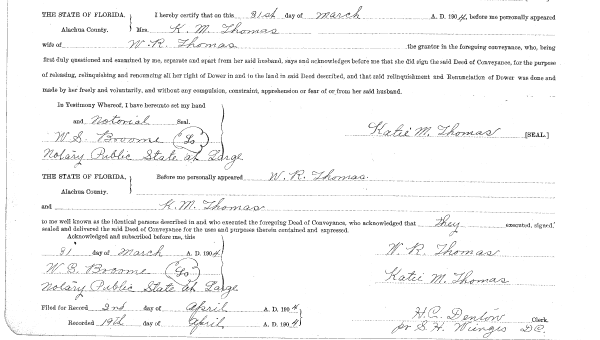 THE STATE OF FLORIDA. I hereby certify that on this 31st day of March A. D. 1904, before me personally appeared
Alachua County. Mrs. K. M. Thomas
wife of W. R. Thomas the grantor in the foregoing conveyance, who, being
first duly questioned and examined by me, separate and apart from her said husband, says and acknowledges before me that she did sign the said Deed of Conveyance, for the purpose
of releasing, relinquishing and renouncing all her right of Dower in and to the land in said Deed described, and that said relinquishment and Renunciation of Dower was done and
made by her freely and voluntarily, and without any compulsion, constraint, apprehension or fear of or from her said husband.
In Testimony Whereof, I have hereunto set my hand
and Notorial Seal.
W. S. Broome Katie M. Thomas [SEAL.]
Notary Public State at Large
THE STATE OF FLORIDA. Before me personally appeared W. R. Thomas.
Alachua County.
and K. M. Thomas
to me well known as the identical persons described in and who executed the foregoing Deed of Conveyance, who acknowledged that they executed, signed,
sealed and delivered the said Deed of Conveyance for the uses and purposes therein contained and expressed.
Acknowledged and subscribed before me, this
31 day of March A. D. 1904. W. R. Thomas
W. B. Broome Katie M. Thomas
Notary Public State at Large
Filed for Record 2nd day of April A. D. 1904 H. C. Denton Clerk.
Recorded 19th day of April A. D. 1904 pr S. H. D.C.